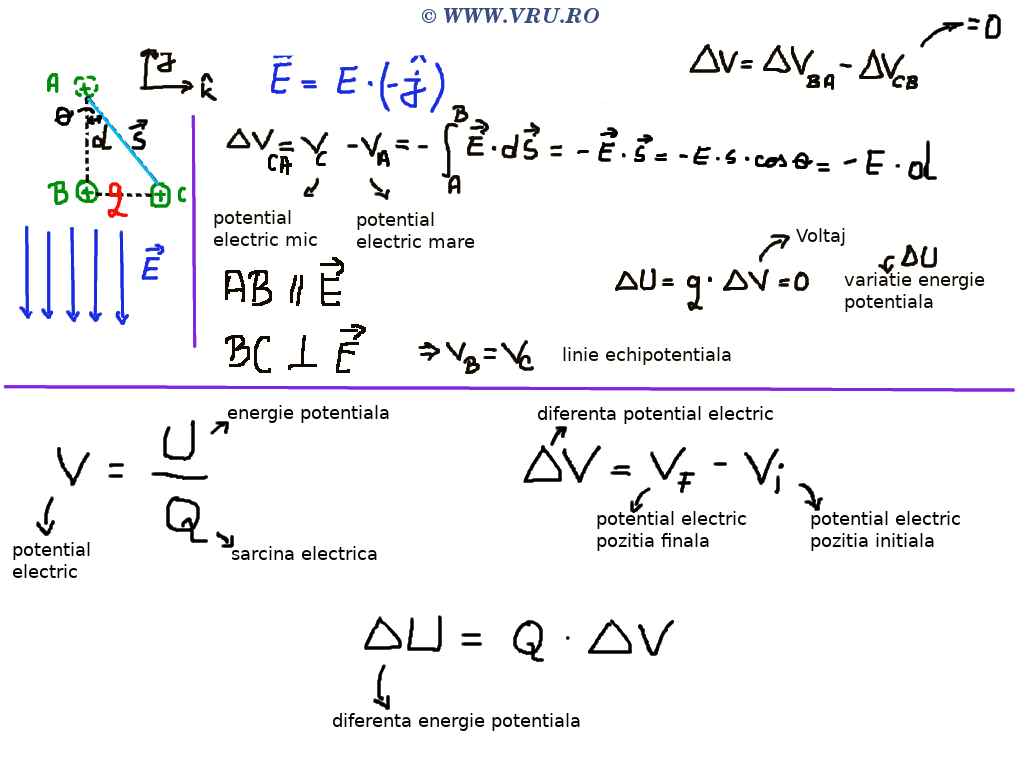 © WWW.VRU.RO
ΔV = ΔV_BA - ΔV_CB = 0
A
ĵ
k̂
E̅ = E·(-ĵ)
θ
d
S⃗
B
q
C
E⃗
ΔV_CA = V_C - V_A = - ∫_A^B E⃗·dS⃗ = - E⃗·S⃗ = -E·s·cosθ = - E·d
potential
electric mic
potential
electric mare
Voltaj
AB ∥ E⃗
ΔU = q·ΔV = 0
ΔU
variatie energie
potentiala
BC ⊥ E⃗
⇒ V_B = V_C
linie echipotentiala
energie potentiala
V = U / Q
potential
electric
sarcina electrica
diferenta potential electric
ΔV = V_F - V_i
potential electric
pozitia finala
potential electric
pozitia initiala
ΔU = Q · ΔV
diferenta energie potentiala